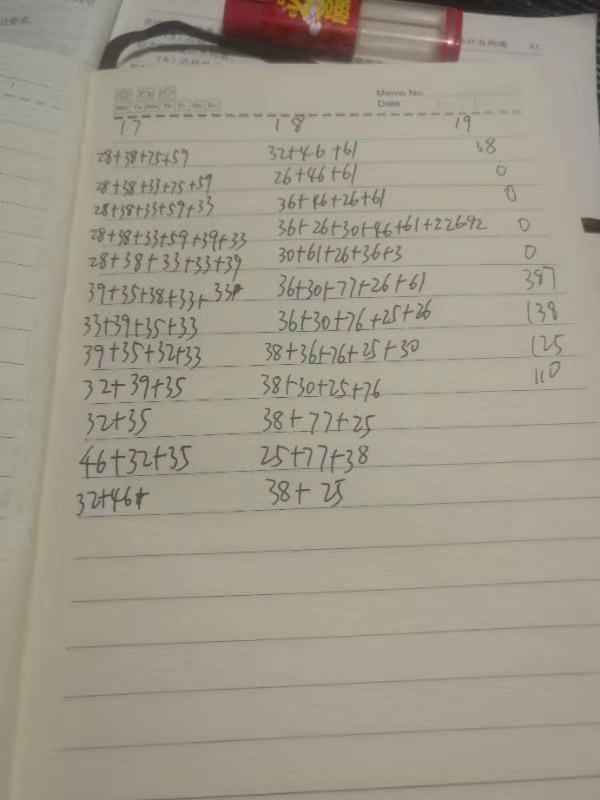 Memo No.
Date
17 18 19
28+38+25+59 32+46+61 38
28+38+33+25+59 26+46+61 0
28+38+33+59+33 36+46+26+61 0
28+38+33+59+39+33 36+26+30+46+61+22692 0
28+38+33+33+39 30+61+26+36+3 0
39+35+38+33+33+ 36+30+77+26+61 387
33+39+35+33 36+30+76+25+26 138
39+35+32+33 38+36+76+25+30 125
32+39+35 38+30+25+76 110
32+35 38+77+25
46+32+35 25+77+38
32+46+ 38+25